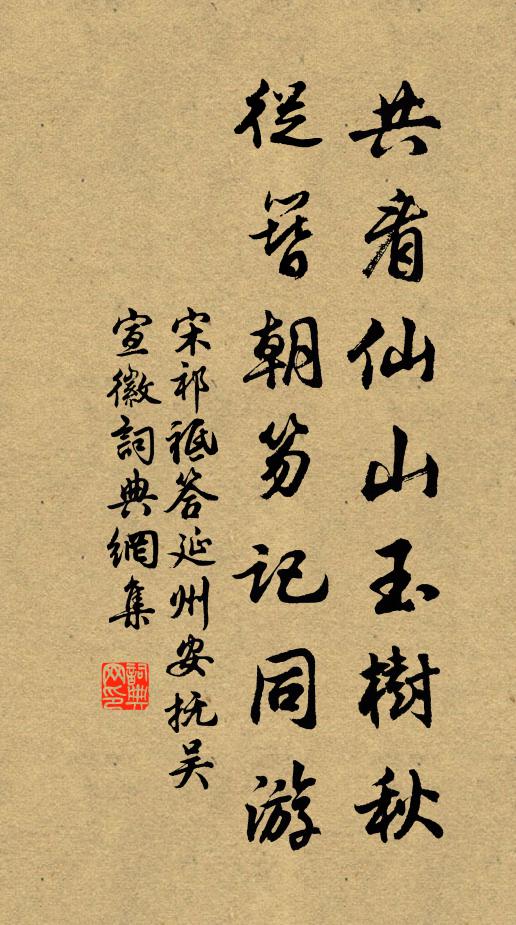 共看仙山玉樹秋
從簪朝笏記同游
宋祁祗答延州安抚吴
宣徽詞典網集
詞典网印